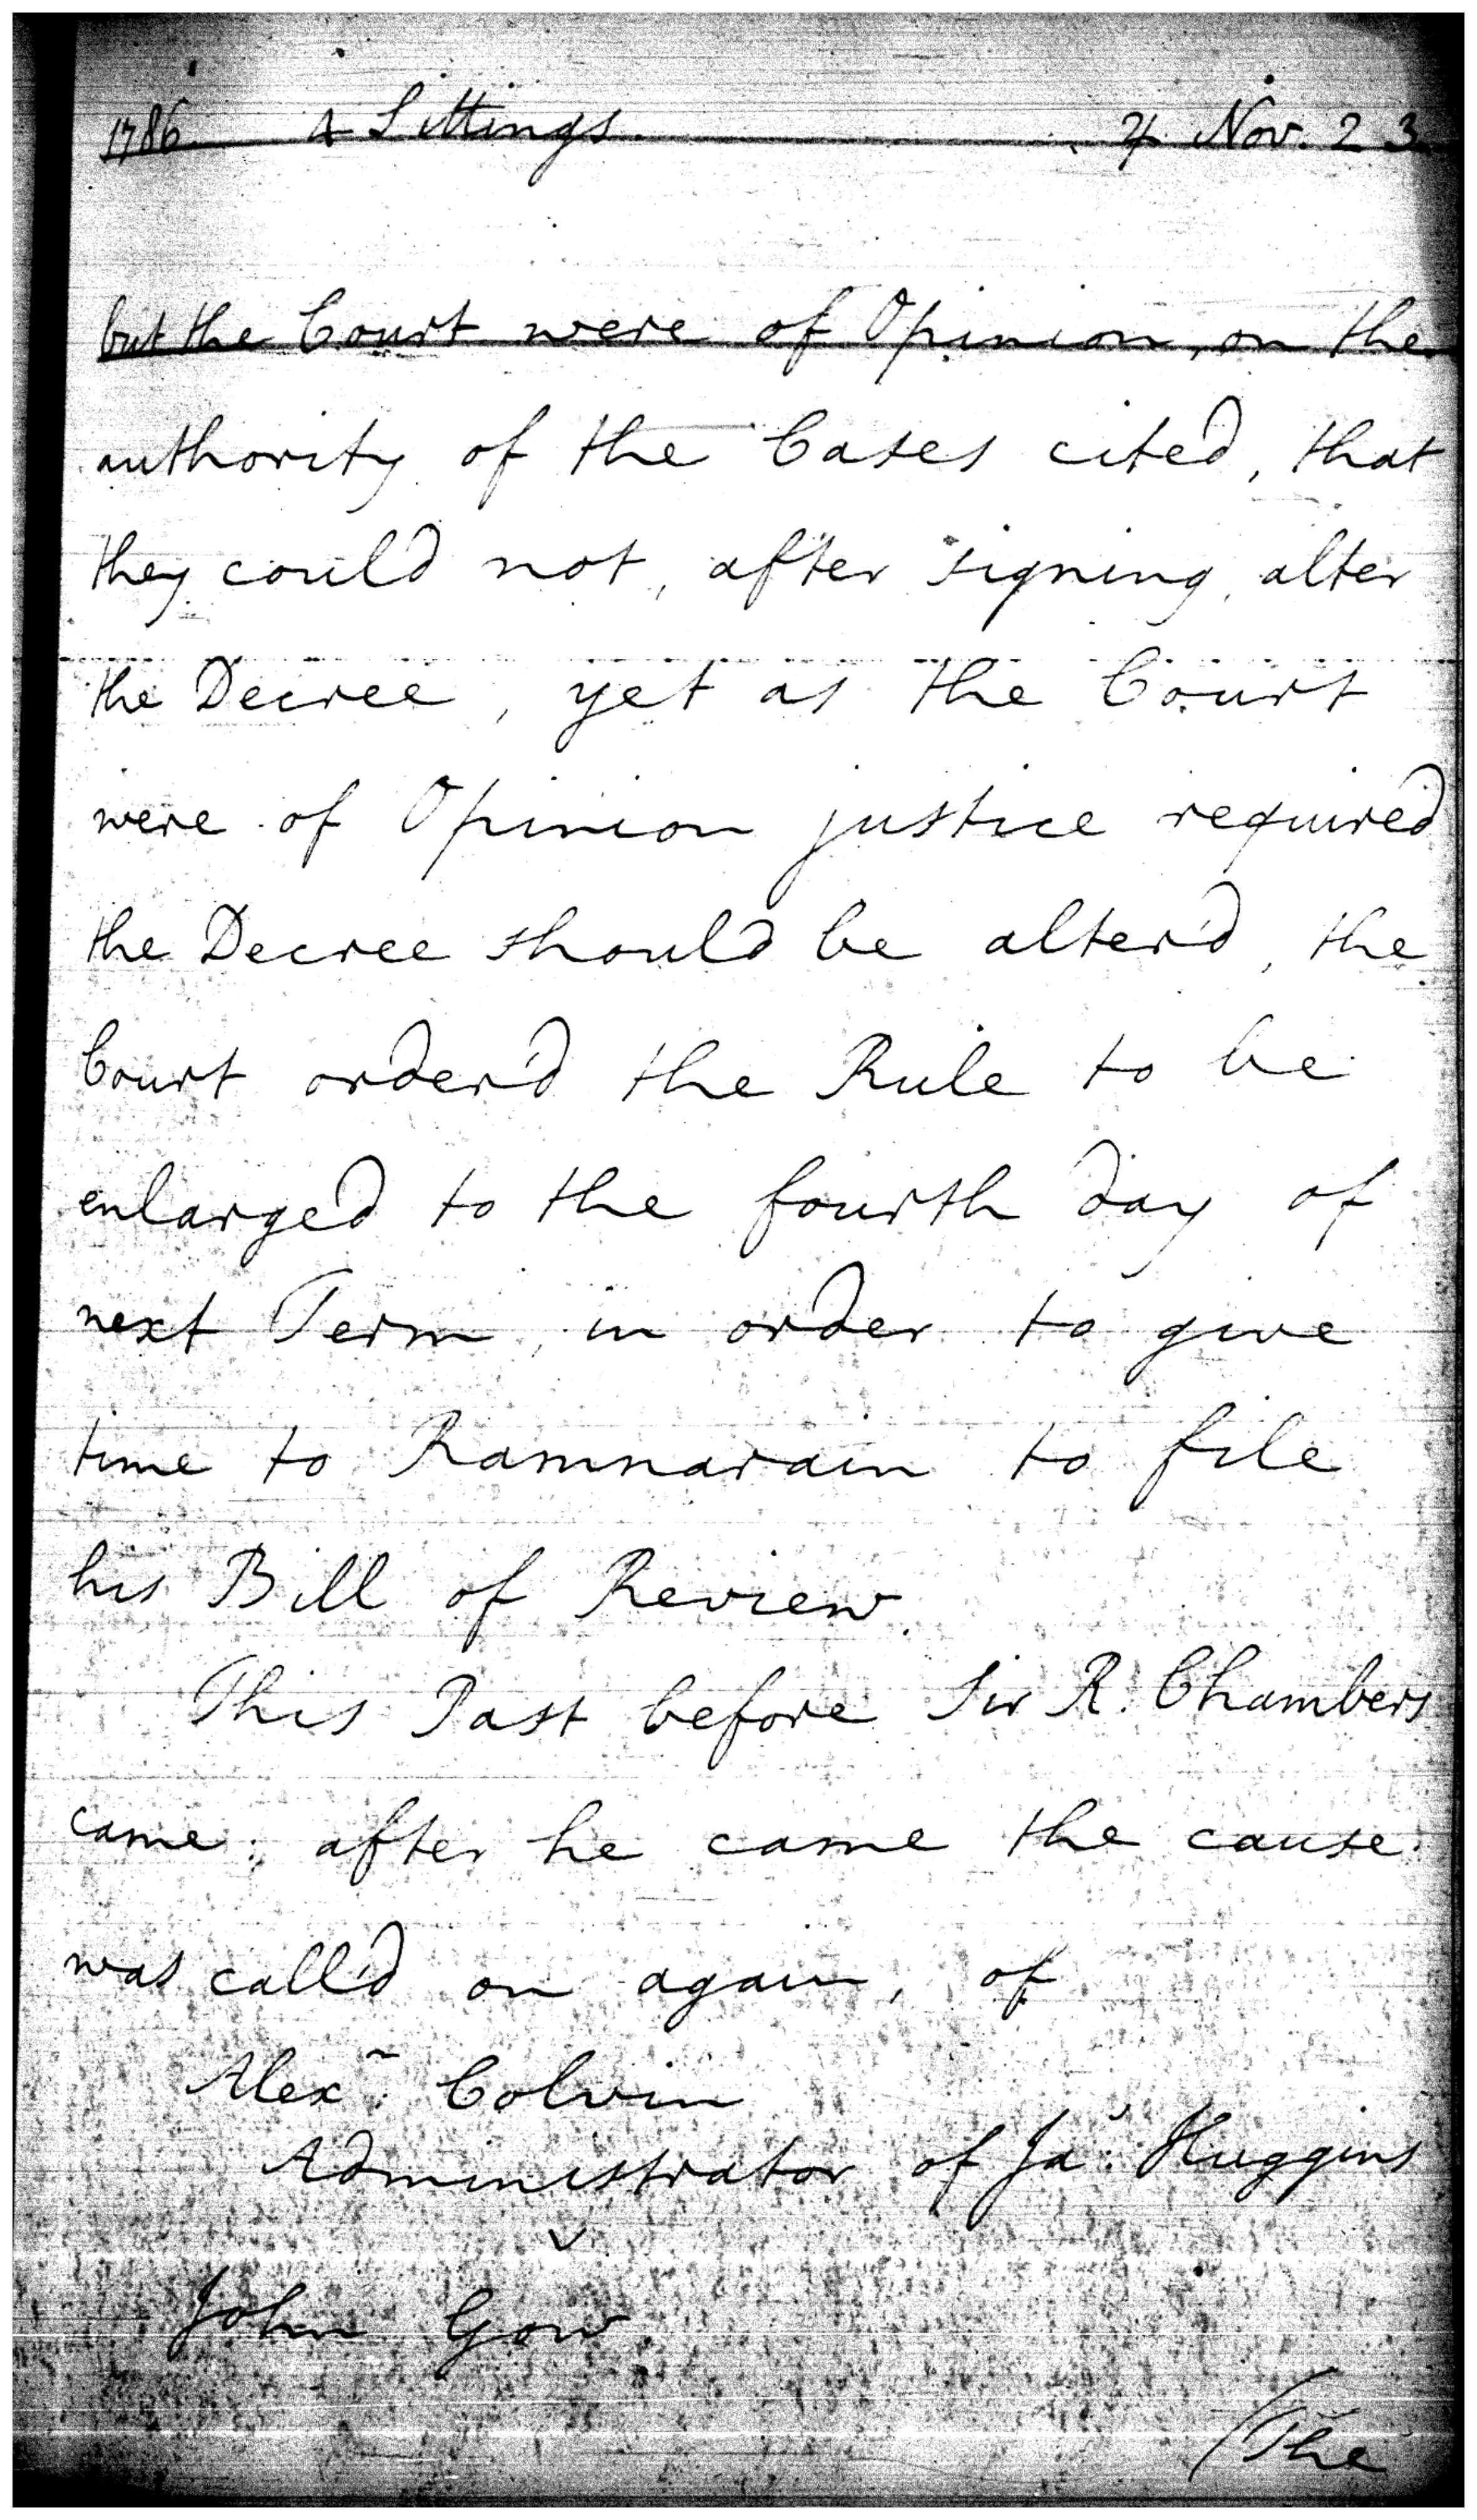 1786. 4 Sittings. ♃ Nov. 23.
but the Court were of Opinion, on the
authority of the Cases cited, that
they could not, after signing, alter
the Decree, yet as the Court
were of Opinion justice required
the Decree should be alter'd, the
Court order'd the Rule to be
enlarged to the fourth day of
next Term, in order to give
time to Ramnarain to file
his Bill of Review.
This Past before Sir R. Chambers
came: after he came the cause
was call'd on again, of
Alexr. Colvin
Administrator of Jas. Huggins
v
John Gow.
/The